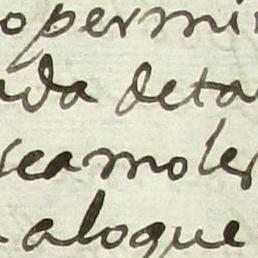 opermi
ada deta
seamoles
aloque